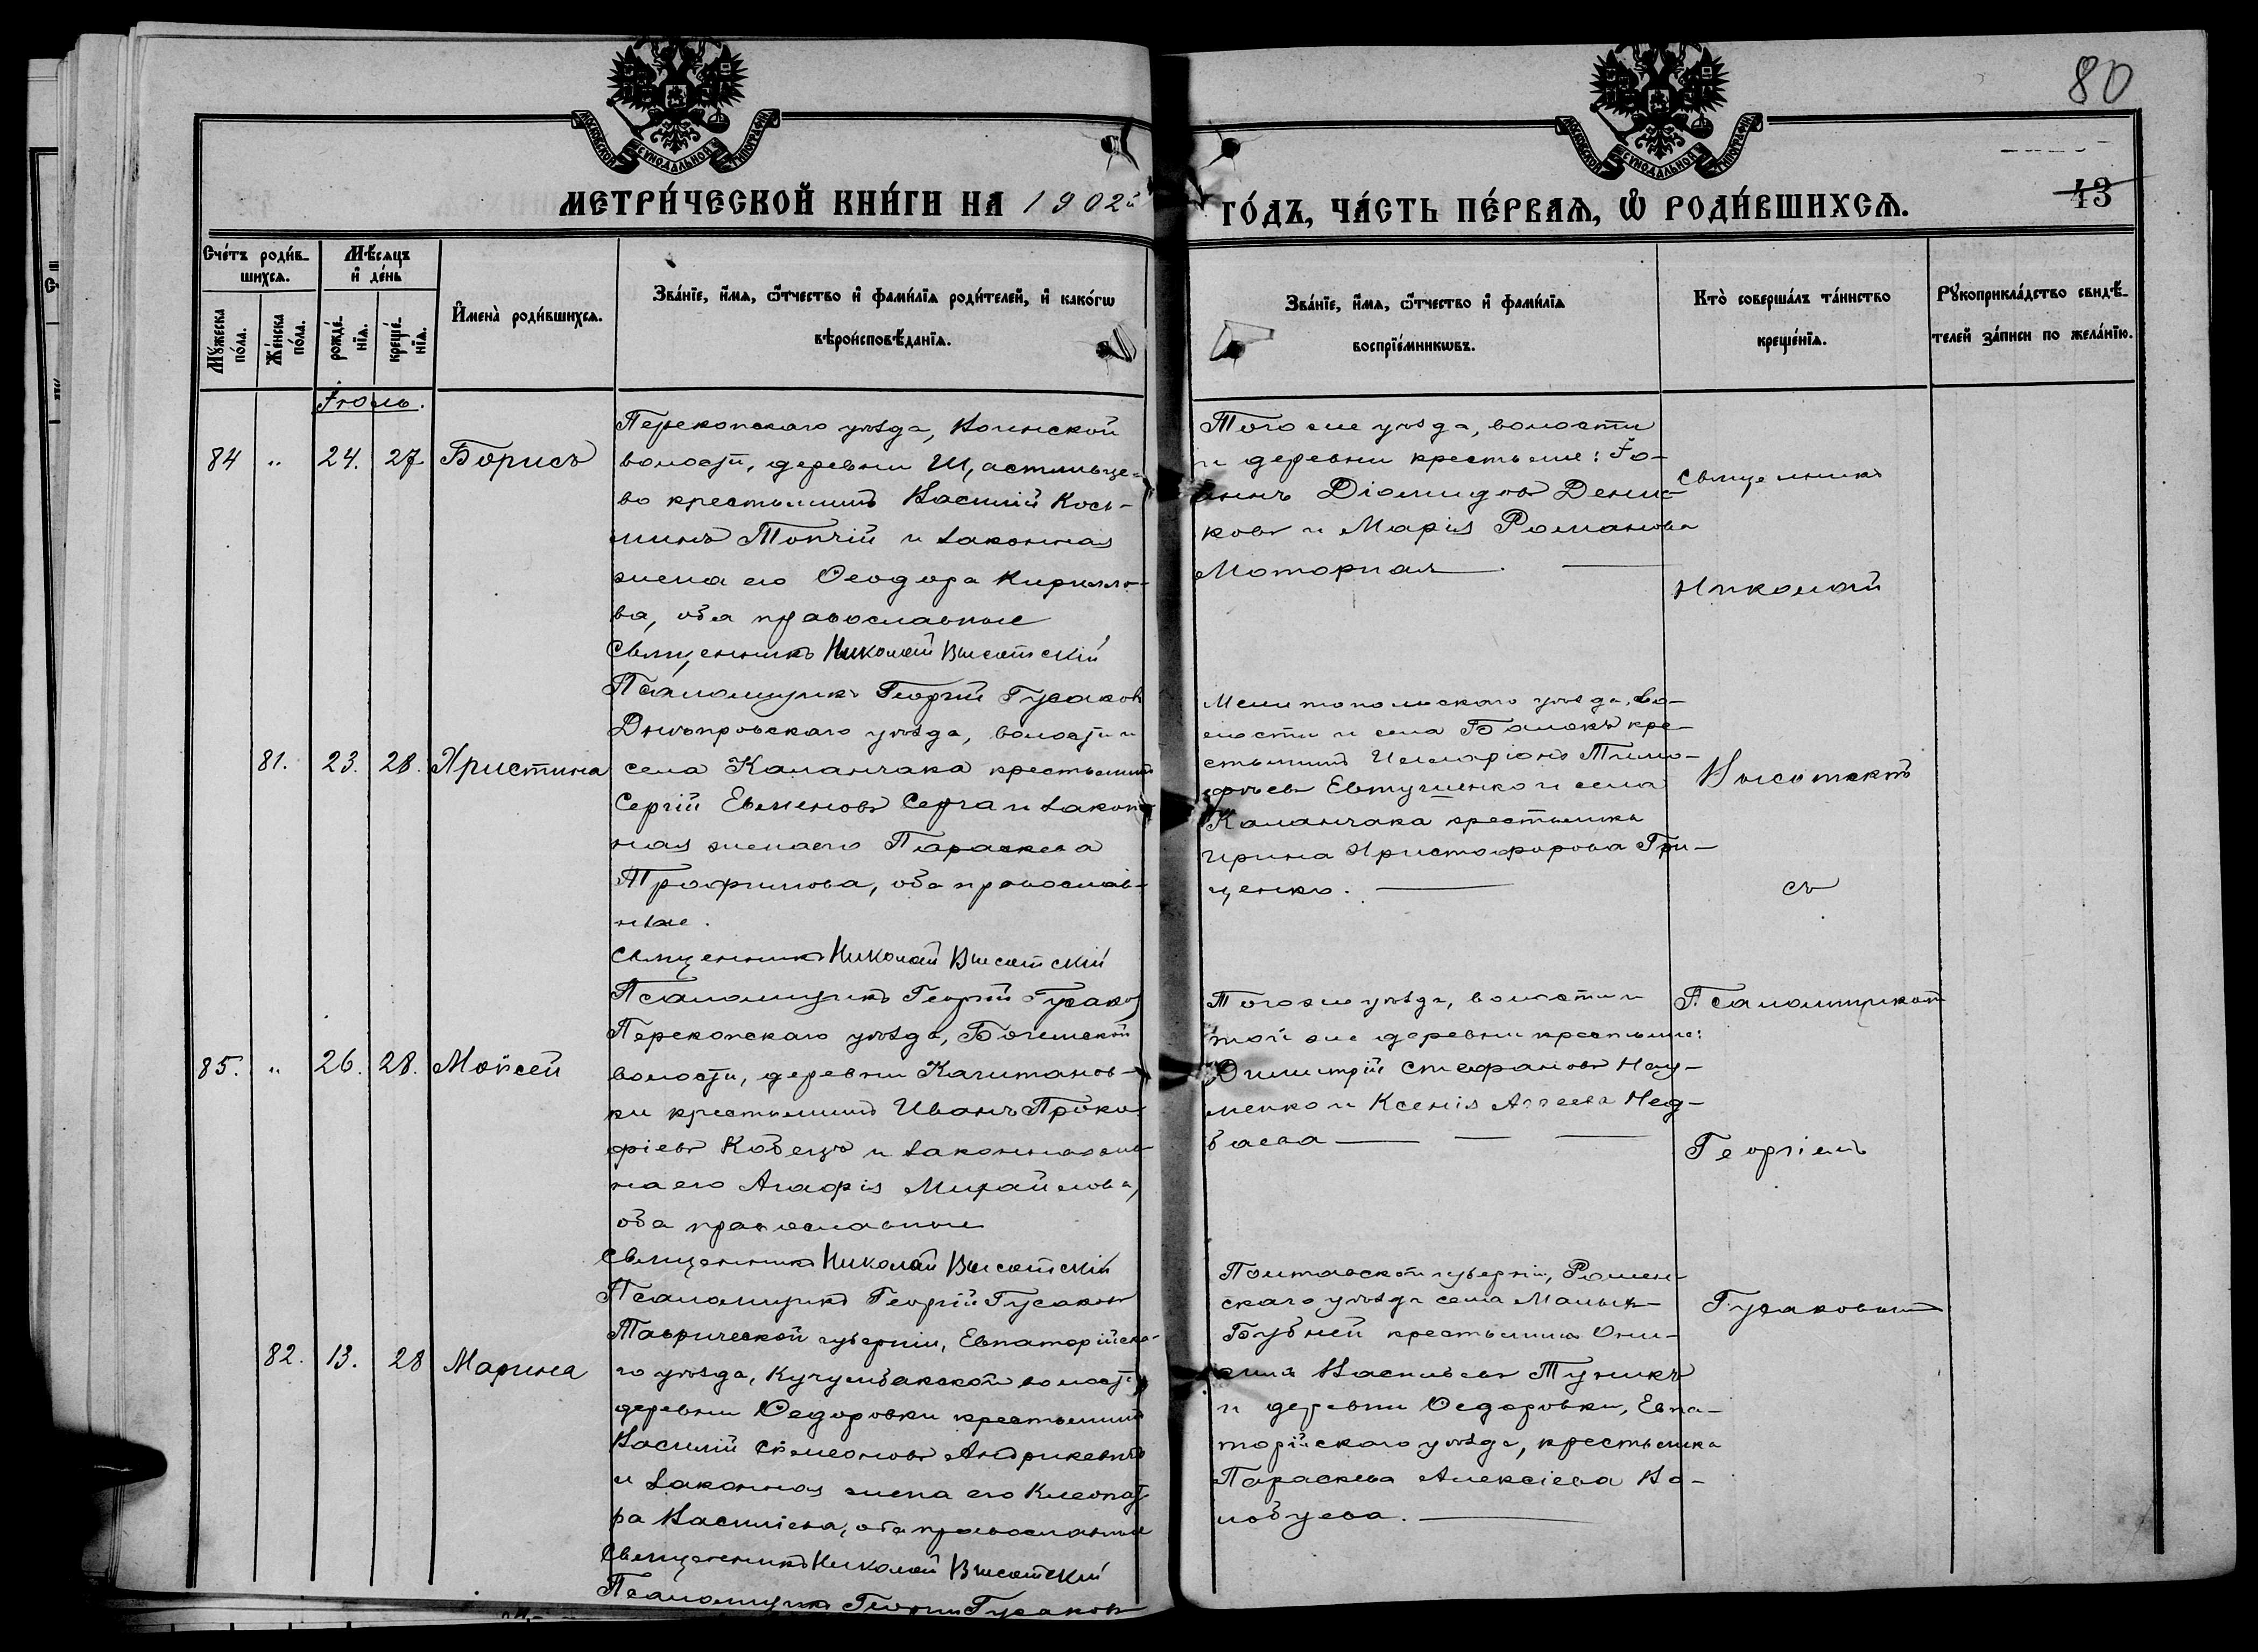 80
МОСКОВСКОЙ СѴНОДАЛЬНОЙ ТИПОГРАФІИ
МОСКОВСКОЙ СѴНОДАЛЬНОЙ ТИПОГРАФІИ
МЕТРИ́ЧЕСКОЙ КНИ́ГИ НА 1902й
ГО́ДЪ, ЧА́СТЬ ПЕ́РВАѦ, Ѡ҆ РОДИ́ВШИХСѦ.
43
Сче́тъ роди́в-
шихсѧ.
Мѣ́сѧцъ
и҆ де́нь
Мꙋ́жеска
по́ла.
Же́нска
по́ла.
рожде́-
нїѧ.
креще́-
нїѧ.
И҆мена̀ роди́вшихсѧ.
Зва́нїе, и҆́мѧ, ѻ҆́тчество и҆ фами́лїѧ роди́телей, и҆ како́гѡ
вѣроисповѣ́данїѧ.
Зва́нїе, и҆́мѧ, ѻ҆́тчество и҆ фами́лїѧ
воспрїе́мникѡвъ.
Кто̀ соверша́лъ та́инство
креще́нїѧ.
Рꙋкоприкла́дство свидѣ́-
телей за́писи по жела́нїю.
Іюль.
84 " 24. 27 Борисъ
Перекопскаго уѣзда, Воинской
волости, деревни Щастливце-
во крестьянинъ Василій Косьминъ Топчій и законная
жена его Ѳеодора Кириллова, оба православные
Священникъ Николай Высотскій
Псаломщикъ Георгій Гусаковъ
Того же уѣзда, волости
и деревни крестьяне: Іо-
аннъ Діомидовъ Денис-
ковъ и Марія Романова
Моторная
81. 23. 28. Христина
Днѣпровскаго уѣзда, волости и
села Каланчака крестьянинъ
Сергій Евменовъ Серга и закон-
ная жена его Параскева
Трофимова, оба православ-
ные.
Священникъ Николай Высотскій
Псаломщикъ Георгій Гусаковъ
Мелитопольскаго уѣзда, во-
лости и села Балокъ кре-
стьянинъ Илларіонъ Тимо-
фѣевъ Евтушенко и села
Каланчака крестьянка
Ирина Христофорова Гри-
ценко.
85. " 26. 28. Моѵсей
Перекопскаго уѣзда, Богемской
волости, деревни Кагитанов-
ки крестьянинъ Иванъ Проко-
фіевъ Кобецъ и законная же-
на его Агафія Михайлова,
оба православные
Священникъ Николай Высотскій
Псаломщикъ Георгій Гусаковъ
Того же уѣзда, волости и
той же деревни крестьяне:
Димитрій Стефановъ Нау-
менко и Ксенія Аггеева Нед-
баева
82. 13. 28 Марина
Таврической губерніи, Евпаторійска-
го уѣзда, Кучукбакской волости,
деревни Ѳедоровки крестьянинъ
Василій Сѵмеоновъ Андрикевичъ
и законная жена его Клеопат-
ра Василіева, оба православные
Священникъ Николай Высотскій
Псаломщикъ Георгій Гусаковъ
Полтавской губерніи, Ромен-
скаго уѣзда села Малыхъ-
Бубней крестьянинъ Они-
симъ Васильевъ Тупикъ
и деревни Ѳедоровки, Евпа-
торійскаго уѣзда, крестьянка
Параскева Алексіева Ко-
лобуева.
Священникъ
Николай
Высотскій
съ
Псаломщикомъ
Георгіемъ
Гусаковымъ